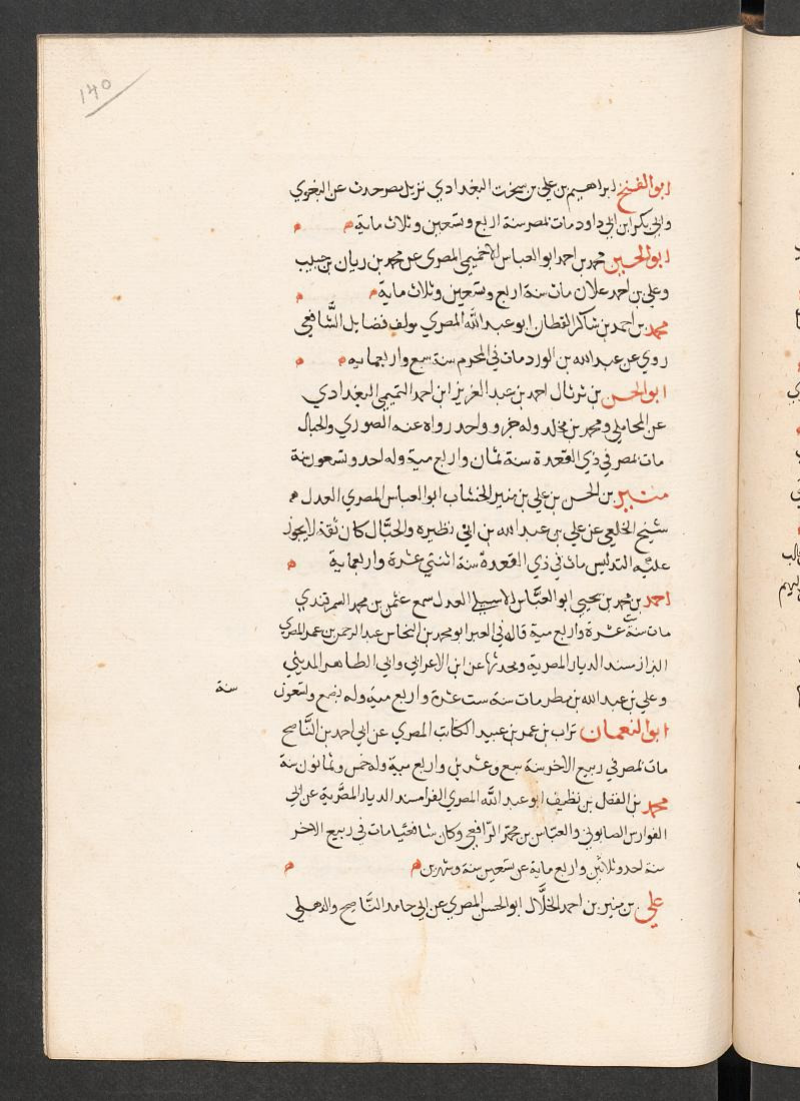 140
ابو الفتح ابراهيم بن علي بن سيخت البغدادي نزيل مصر حدث عن البغوي
وابي بكر ابن ابي داود مات بمصر سنة اربع وتسعين وثلاث ماية
ابو الحسين محمد بن احمد ابو العباس الاخميمي المصري عن محمد بن ريان بن حبيب
وعلي بن احمد علان مات سنة اربع وتسعين وثلاث ماية
محمد بن احمد بن شاكر القطان ابو عبد الله المصري مولف فضايل الشافعي
روي عن عبد الله بن الورد مات في المحرم سنة سبع واربعمايه
ابو الحسن بن ثرثال احمد بن عبد العزيز ابن احمد التميمي البغدادي
عن المحاملي ومحمد بن مخلد وله جزو واحد رواه عنه الصوري والحبال
مات بمصر في ذي القعدة سنة ثمان واربع مية وله احد وتسعون سنة
منير بن الحسن بن علي بن منير الخشاب ابو العباس المصري العدل
شيخ الخلعي عن علي بن عبد الله بن ابي نظيره والحبّال كان ثقة لا يجوز
عليه التدليس مات في ذي القعدة سنة اثنتي عشرة واربعماية
احمد بن محمد بن يحيى ابو العبّاس الاسبيلي العدل سمع عثمن بن محمد السمرقندي
مات سنة عشرة واربع مية قاله في العبر ابو محمد بن النحاس عبد الرحمن بن عمر المصري
البزاز مسند الديار المصرية ومحدثها عن ابن الاعرابي وابي الطاهر المديني
وعلي بن عبد الله بن مطر مات سنه ست عشرة واربع مية وله بضع وتسعون سنة
ابو النعمان تراب بن عمر بن عبيد الكاتب المصري عن ابي احمد بن النّاصح
مات بمصر في ربيع الاخر سنة سبع وعشرين واربع مية وله خمس وثمانون سنة
محمد بن الفضل بن نظيف ابو عبد اللّه المصري الفرا مسند الديار المصّرية عن ابي
الفوارس الصابوني والعبّاس بن محمّد الرّافعي وكان شافعيا مات في ربيع الاخر
سنة احد وثلاثين واربع ماية عن تسعين سنة وشهرين
علي بن منير بن احمد الخلّال ابو الحسن المصري عن ابي حامد النّاصح والذهلي